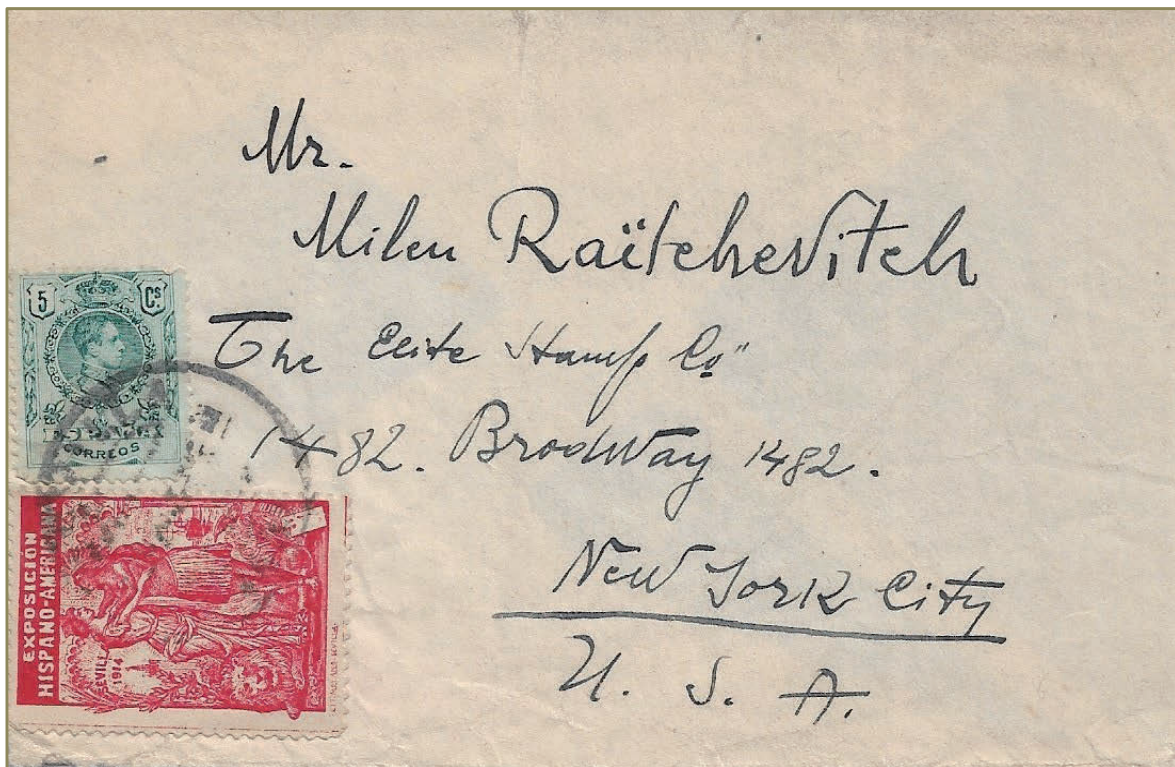 Mr.
Milen Raïtchevitch
The Elite Stamp Co"
1482. Brodway 1482.
New York City
U. S. A.
5 Cs
CORREOS
EXPOSICIÓN
HISPANO-AMERICANA
SEVILLA
1914